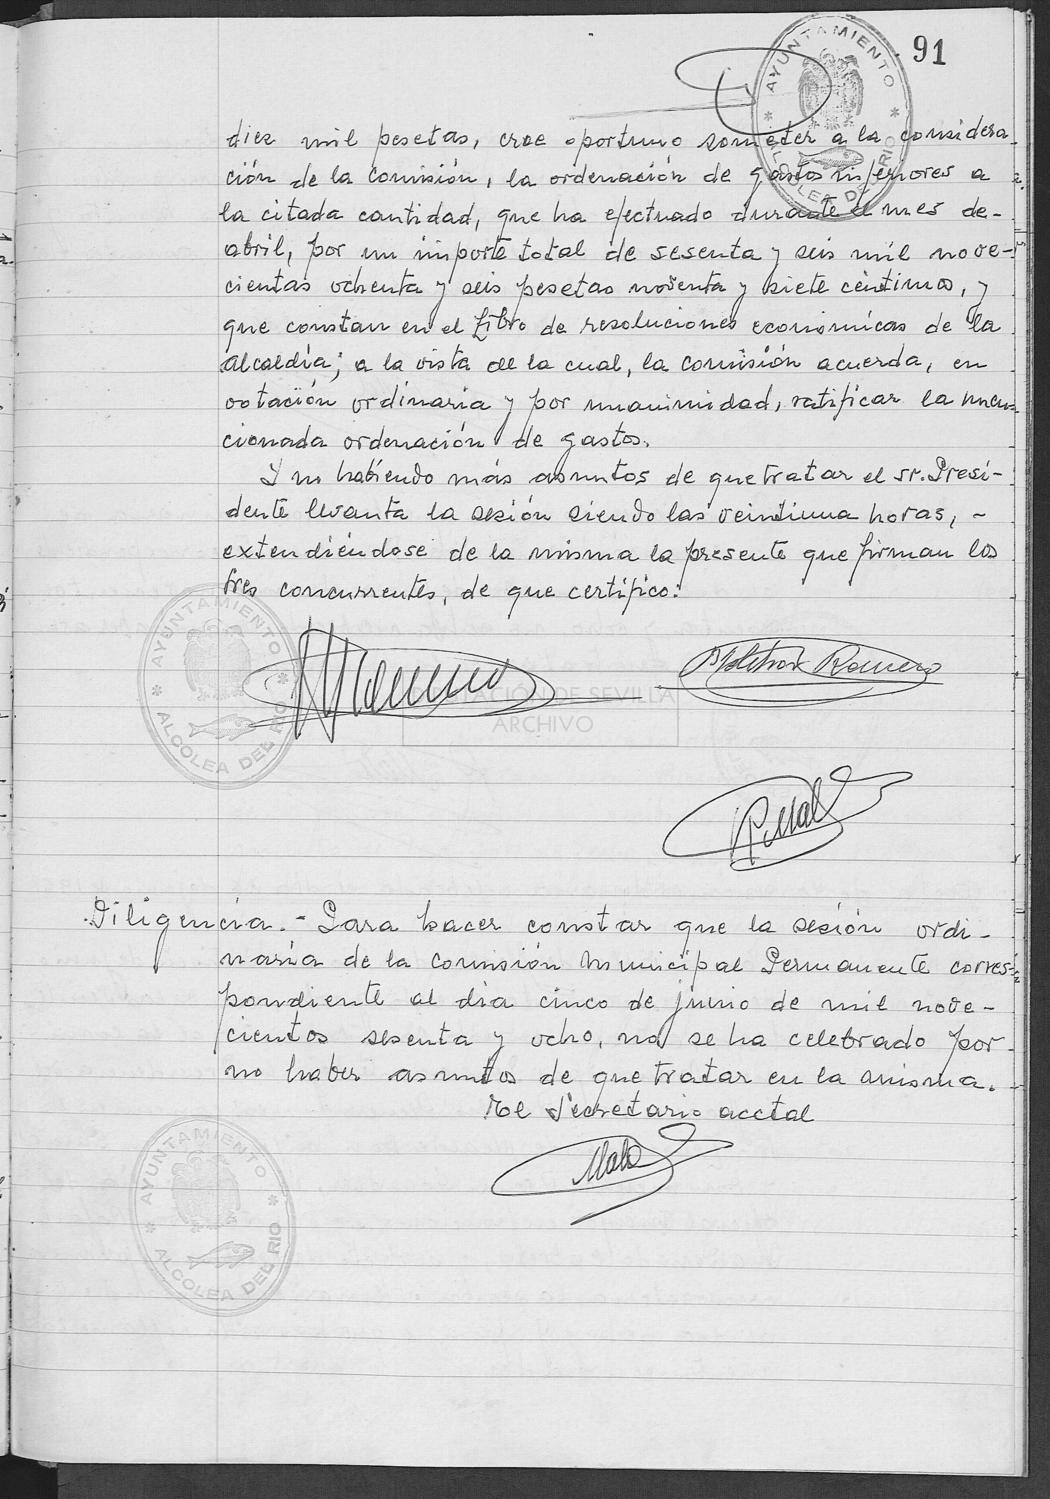 91
AYUNTAMIENTO
ALCOLEA DEL RIO
diez mil pesetas, cree oportuno someter a la considera-
ción de la Comisión, la ordenación de gastos inferiores a
la citada cantidad, que ha efectuado durante el mes de-
abril, por un importe total de sesenta y seis mil nove-
cientas ochenta y seis pesetas noventa y siete céntimos, y
que constan en el Libro de resoluciones económicas de la
Alcaldía; a la vista de la cual, la Comisión acuerda, en
votación ordinaria y por unanimidad, ratificar la men-
cionada ordenación de gastos.
Y no habiendo más asuntos de que tratar el sr. Presi-
dente levanta la sesión siendo las veintiuna horas, -
extendiéndose de la misma la presente que firman los
tres concurrentes, de que certifico:
AYUNTAMIENTO
ALCOLEA DEL RIO
Romero
DIPUTACIÓN DE SEVILLA
ARCHIVO
Diligencia.- Para hacer constar que la sesión ordi-
naria de la Comisión Municipal Permanente corres-
pondiente al día cinco de junio de mil nove-
cientos sesenta y ocho, no se ha celebrado por
no haber asuntos de que tratar en la misma.
El Secretario acctal
AYUNTAMIENTO
ALCOLEA DEL RIO